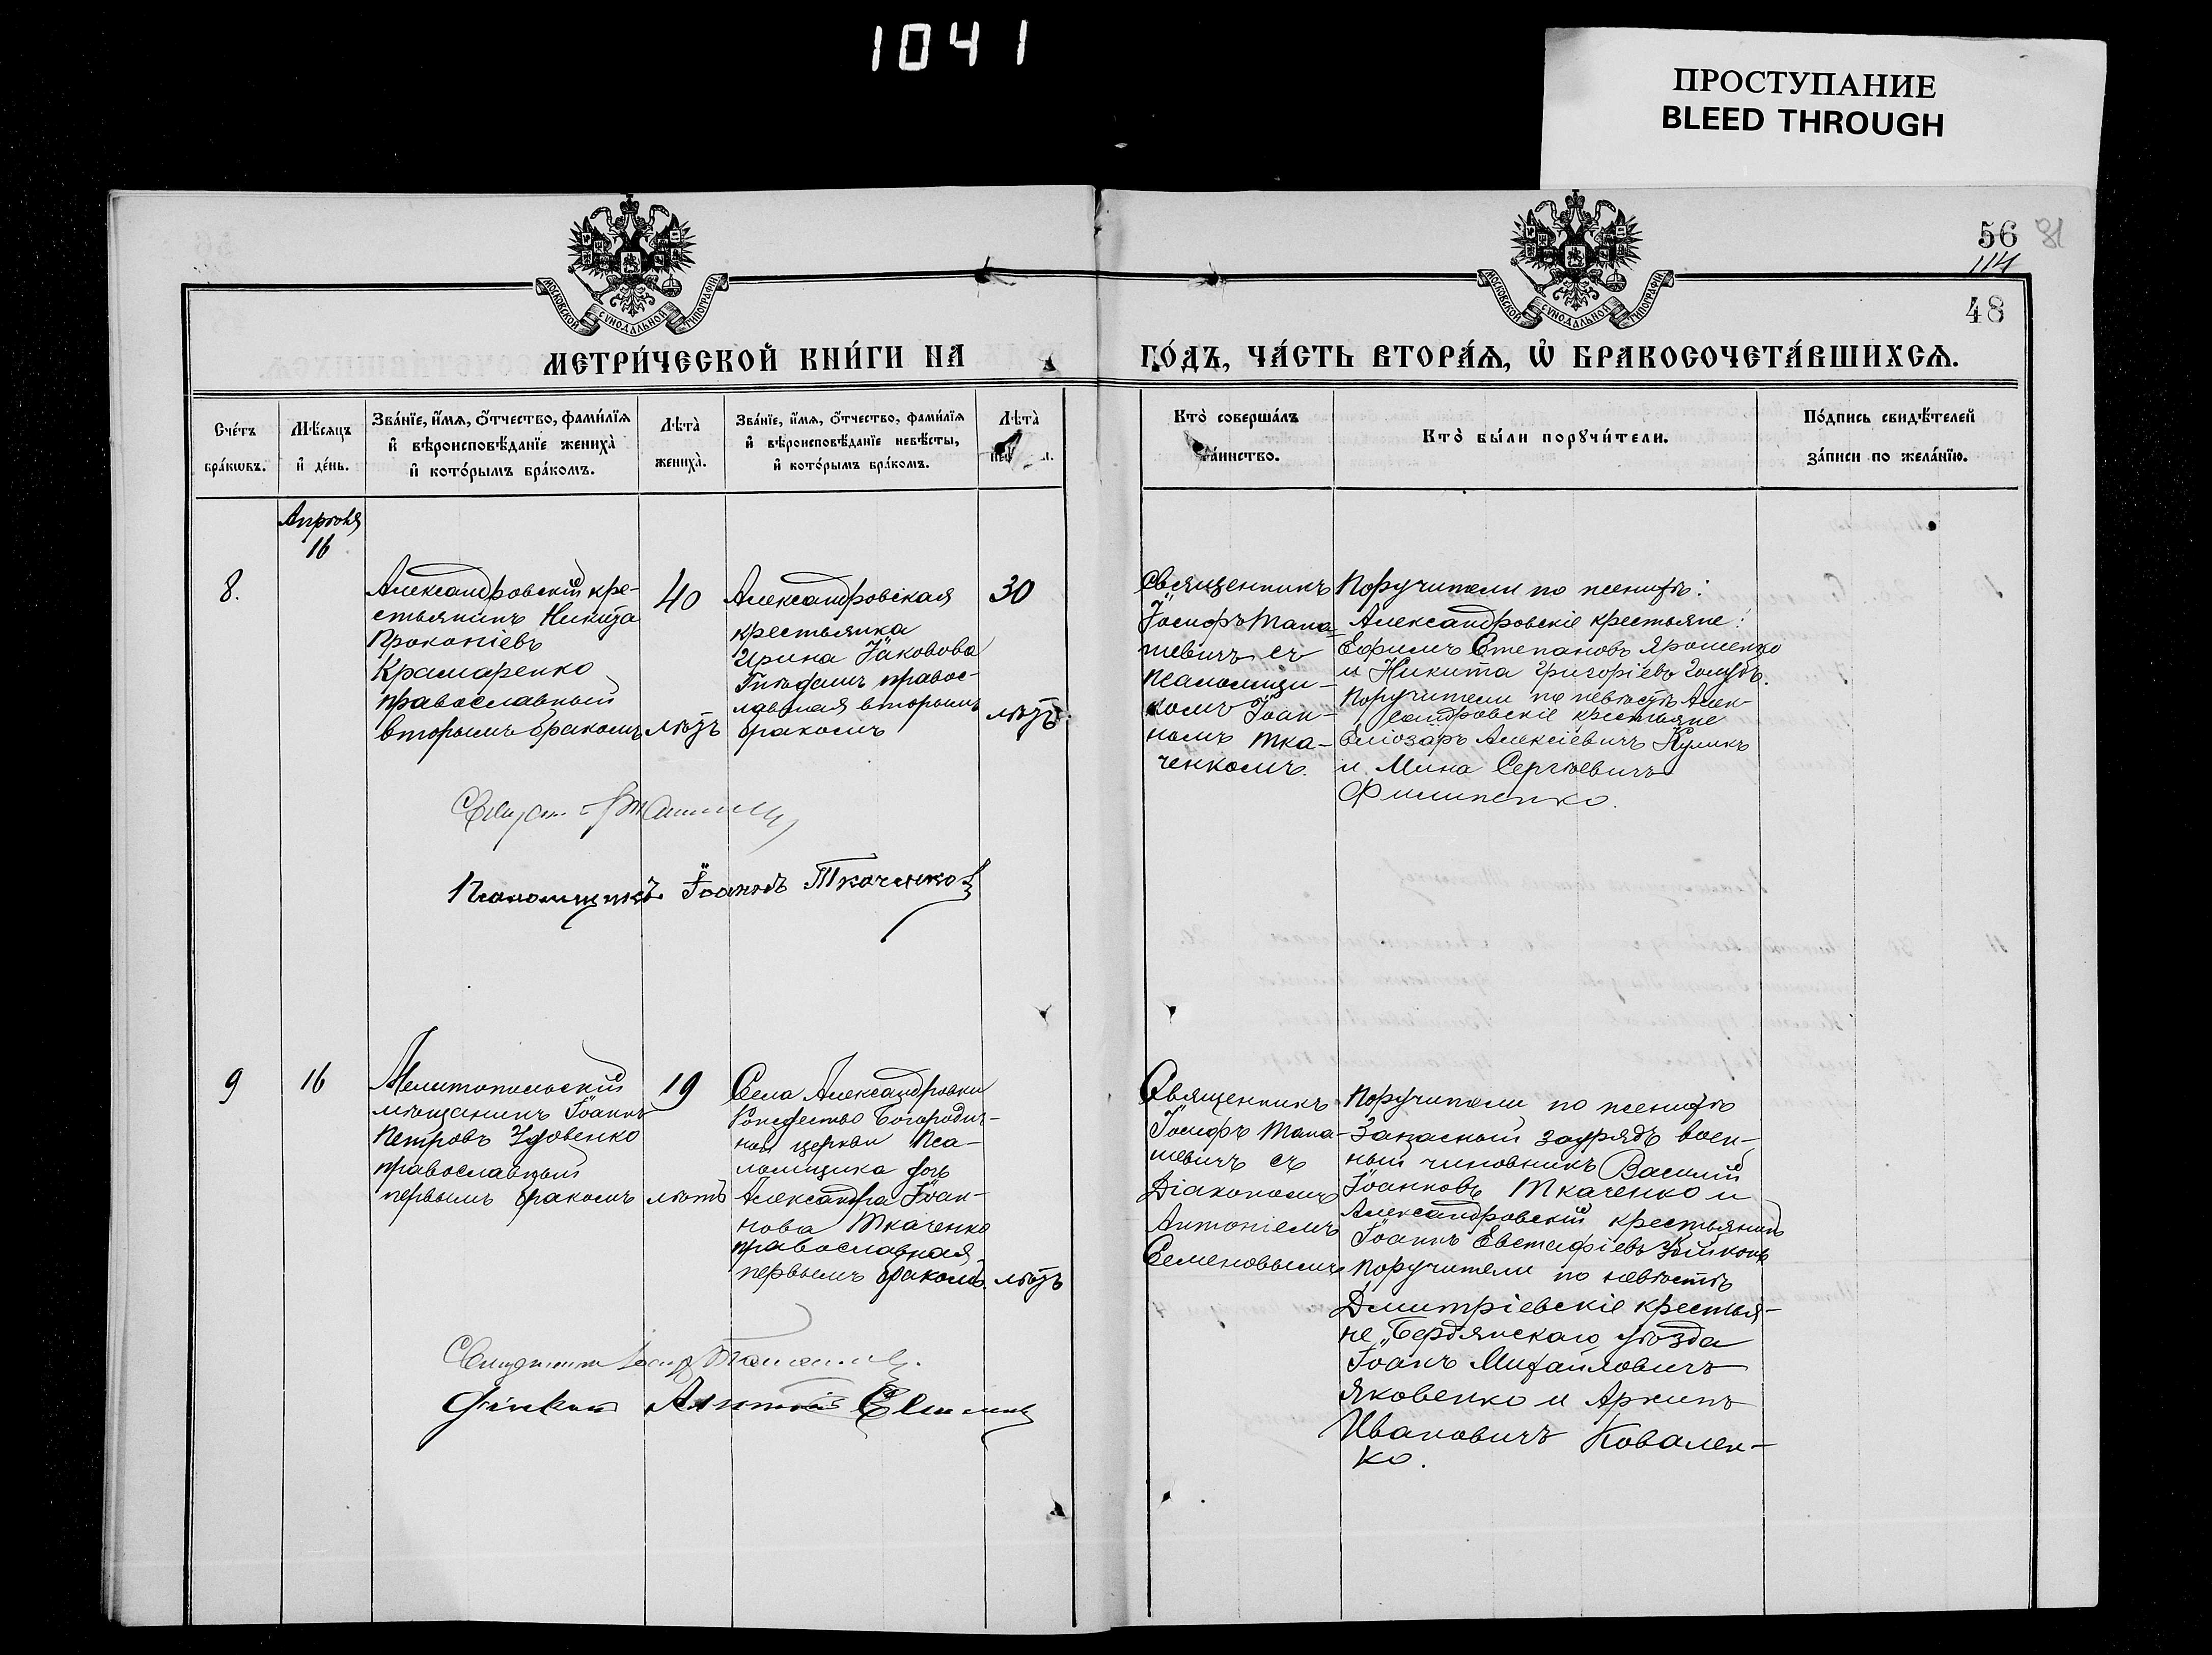 1041
ПРОСТУПАНИЕ
BLEED THROUGH
56
114
48
81
МОСКОВСКОЙ СѴНОДАЛЬНОЙ ТИПОГРАФІИ
МОСКОВСКОЙ СѴНОДАЛЬНОЙ ТИПОГРАФІИ
МЕТРИ́ЧЕСКОЙ КНИ́ГИ НА
ГО́ДЪ, ЧА́СТЬ ВТОРА́Ѧ, Ѡ҆ БРАКОСОЧЕТА́ВШИХСѦ.
Сче́тъ
бра́кѡвъ.
Мѣ́сяцъ
и҆ де́нь.
Зва́нїе, и҆́мѧ, ѻ҆́тчество, фами́лїѧ
и҆ вѣроисповѣ́данїе жениха̀
и҆ кото́рымъ бра́комъ.
Лѣта̀
жениха̀.
Зва́нїе, и҆́мѧ, ѻ҆́тчество, фами́лїѧ
и҆ вѣроисповѣ́данїе невѣ́сты,
и҆ кото́рымъ бра́комъ.
Лѣта̀
Кто̀ соверша́лъ
та́инство.
Кто̀ бы́ли порꙋчи́тели.
По́дпись свидѣ́телей
за́писи по жела́нїю.
Апрѣля
16
8.
Александровскій кре-
стьянинъ Никита
Прокопіевъ
Крамаренко
православный
вторымъ бракомъ
40
лѣтъ
Александровская
крестьянка
Ирина Іаковова
правос-
лавная вторымъ
бракомъ
30
лѣтъ.
Священникъ
Іосифъ Тана-
шевичъ съ
Псаломщи-
комъ Іоан-
номъ Тка-
ченкомъ.
Поручители по женихѣ:
Александровскіе крестьяне:
Ефимъ Степановъ Ярошенко
и Никита Григоріевъ Голубъ.
Поручители по невѣстѣ Алек-
сандровскіе крестьяне
Еліозаръ Алексіевичъ Куликъ
и Мина Сергѣевичъ
Филипенко.
Псаломщикъ Іоаннъ Ткаченко
9
16
Мелитопольскій
мѣщанинъ Іоаннъ
Петровъ Удовенко
православный
первымъ бракомъ
19
лѣтъ
Села Александровки
Рождество Богородич-
ной церкви Пса-
ломщика дочь
Александра Іоан-
нова Ткаченко
православная
первымъ бракомъ.
лѣтъ
Священникъ
Іосифъ Тана-
шевичъ съ
Діакономъ
Антоніемъ
Семеновымъ
Поручители по женихѣ
Запасный заурядъ воен-
ный чиновникъ Василій
Іоанновъ Ткаченко и
Александровскій крестьянинъ
Іоаннъ Евстафіевъ
Поручители по невѣстѣ
Дмитріевскіе крестья-
не, Бердянскаго уѣзда
Іоанъ Михайловичъ
Яковенко и Архипъ
Ивановичъ Ковален-
ко.
Антоній